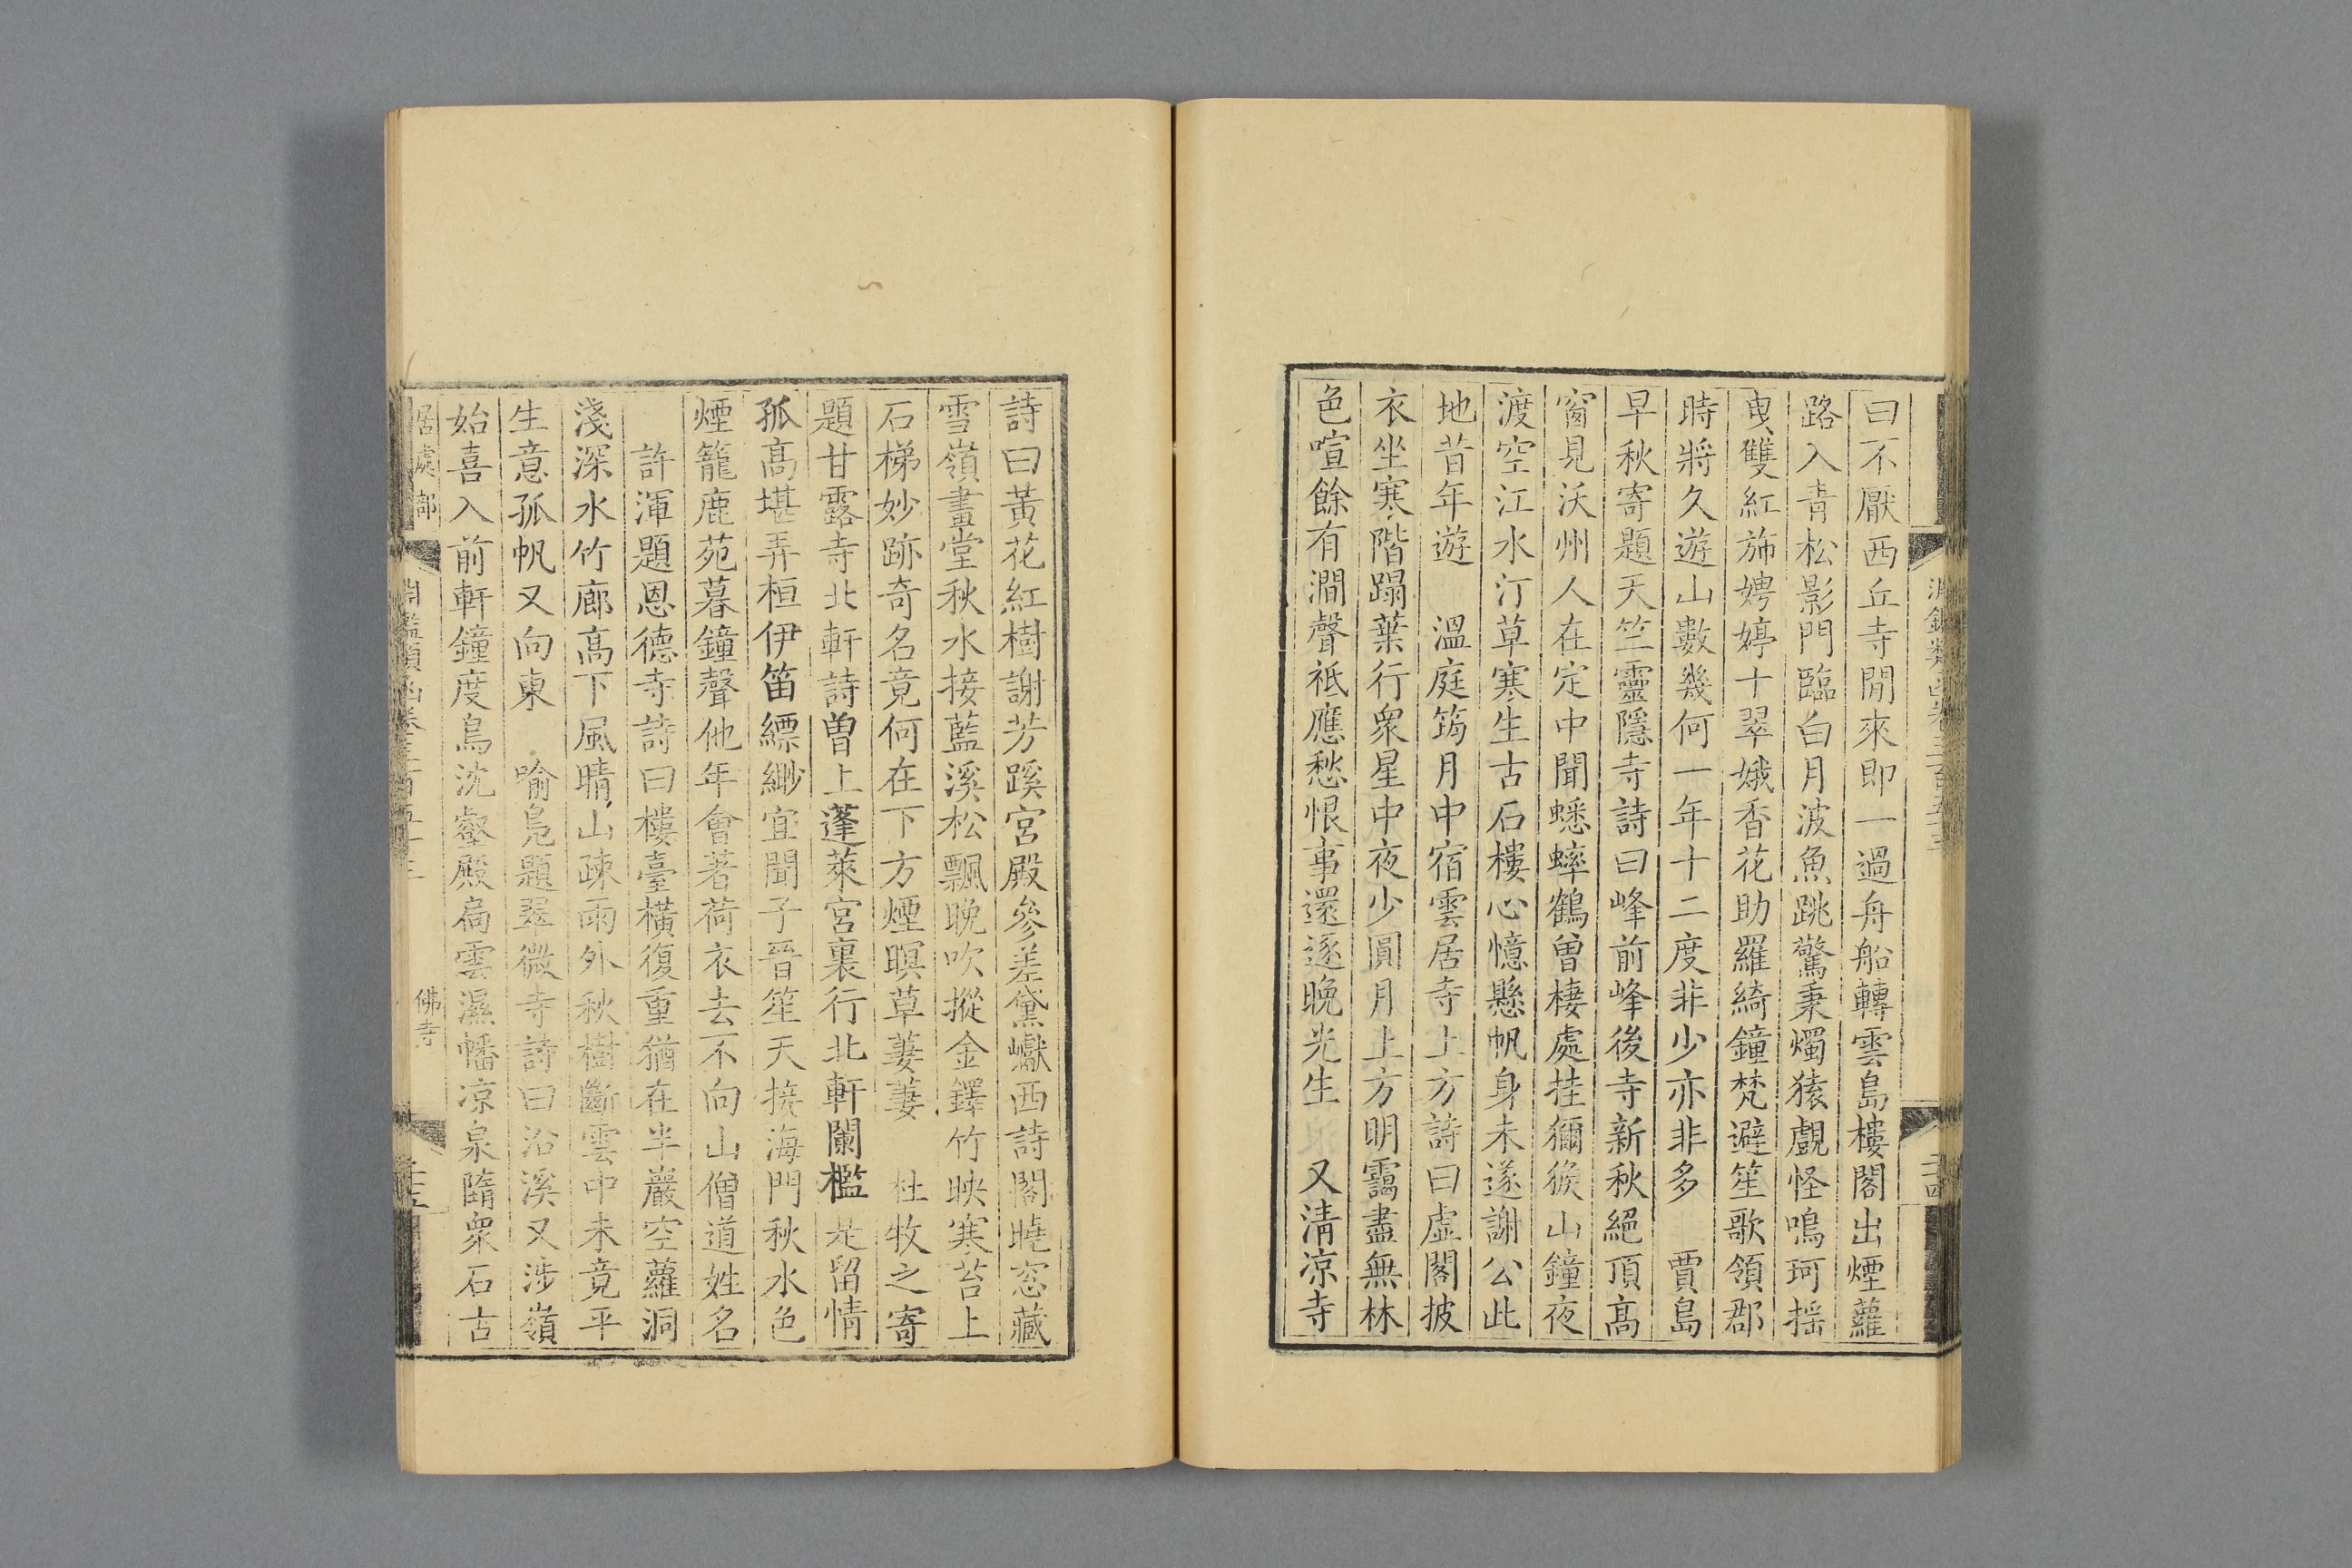 曰不厭西丘寺閒來即一過舟船轉雲島樓閣出煙蘿
路入青松影門臨白月波魚跳驚秉燭猿覷怪鳴珂揺
曳雙紅斾娉婷十翠娥香花助羅綺鐘梵避笙歌領郡
時將久遊山數幾何一年十二度非少亦非多　賈島
早秋寄題天竺靈隱寺詩曰峰前峰後寺新秋絕頂高
窗見沃州人在定中聞蟋蟀鶴曽棲處挂獼猴山鐘夜
渡空江水汀草寒生古石樓心憶懸帆身未遂謝公此
地昔年遊　溫庭筠月中宿雲居寺上方詩曰虛閣披
衣坐寒階蹋葉行衆星中夜少圓月上方明靄盡無林
色喧餘有澗聲祗應愁恨事還逐晚光生　又清凉寺
詩曰黃花紅樹謝芳蹊宮殿參差黛巘西詩閣曉窓藏
雪嶺畫堂秋水接藍溪松飄晚吹摐金鐸竹映寒苔上
石梯妙跡奇名竟何在下方煙暝草萋萋　杜牧之寄
題甘露寺北軒詩曽上蓬萊宮裏行北軒闌檻㝡留情
孤高堪弄桓伊笛縹緲宜聞子晉笙天接海門秋水色
煙籠鹿苑暮鐘聲他年會著荷衣去不向山僧道姓名
許渾題恩德寺詩曰樓臺橫復重猶在半巖空蘿洞
淺深水竹廊高下風晴山疎雨外秋樹斷雲中未竟平
生意孤帆又向東　喻鳧題翠微寺詩曰沿溪又涉嶺
始喜入前軒鐘度鳥沈壑殿扃雲濕幡凉泉墮衆石古
居處部
淵鑑類函卷三百五十三
佛寺